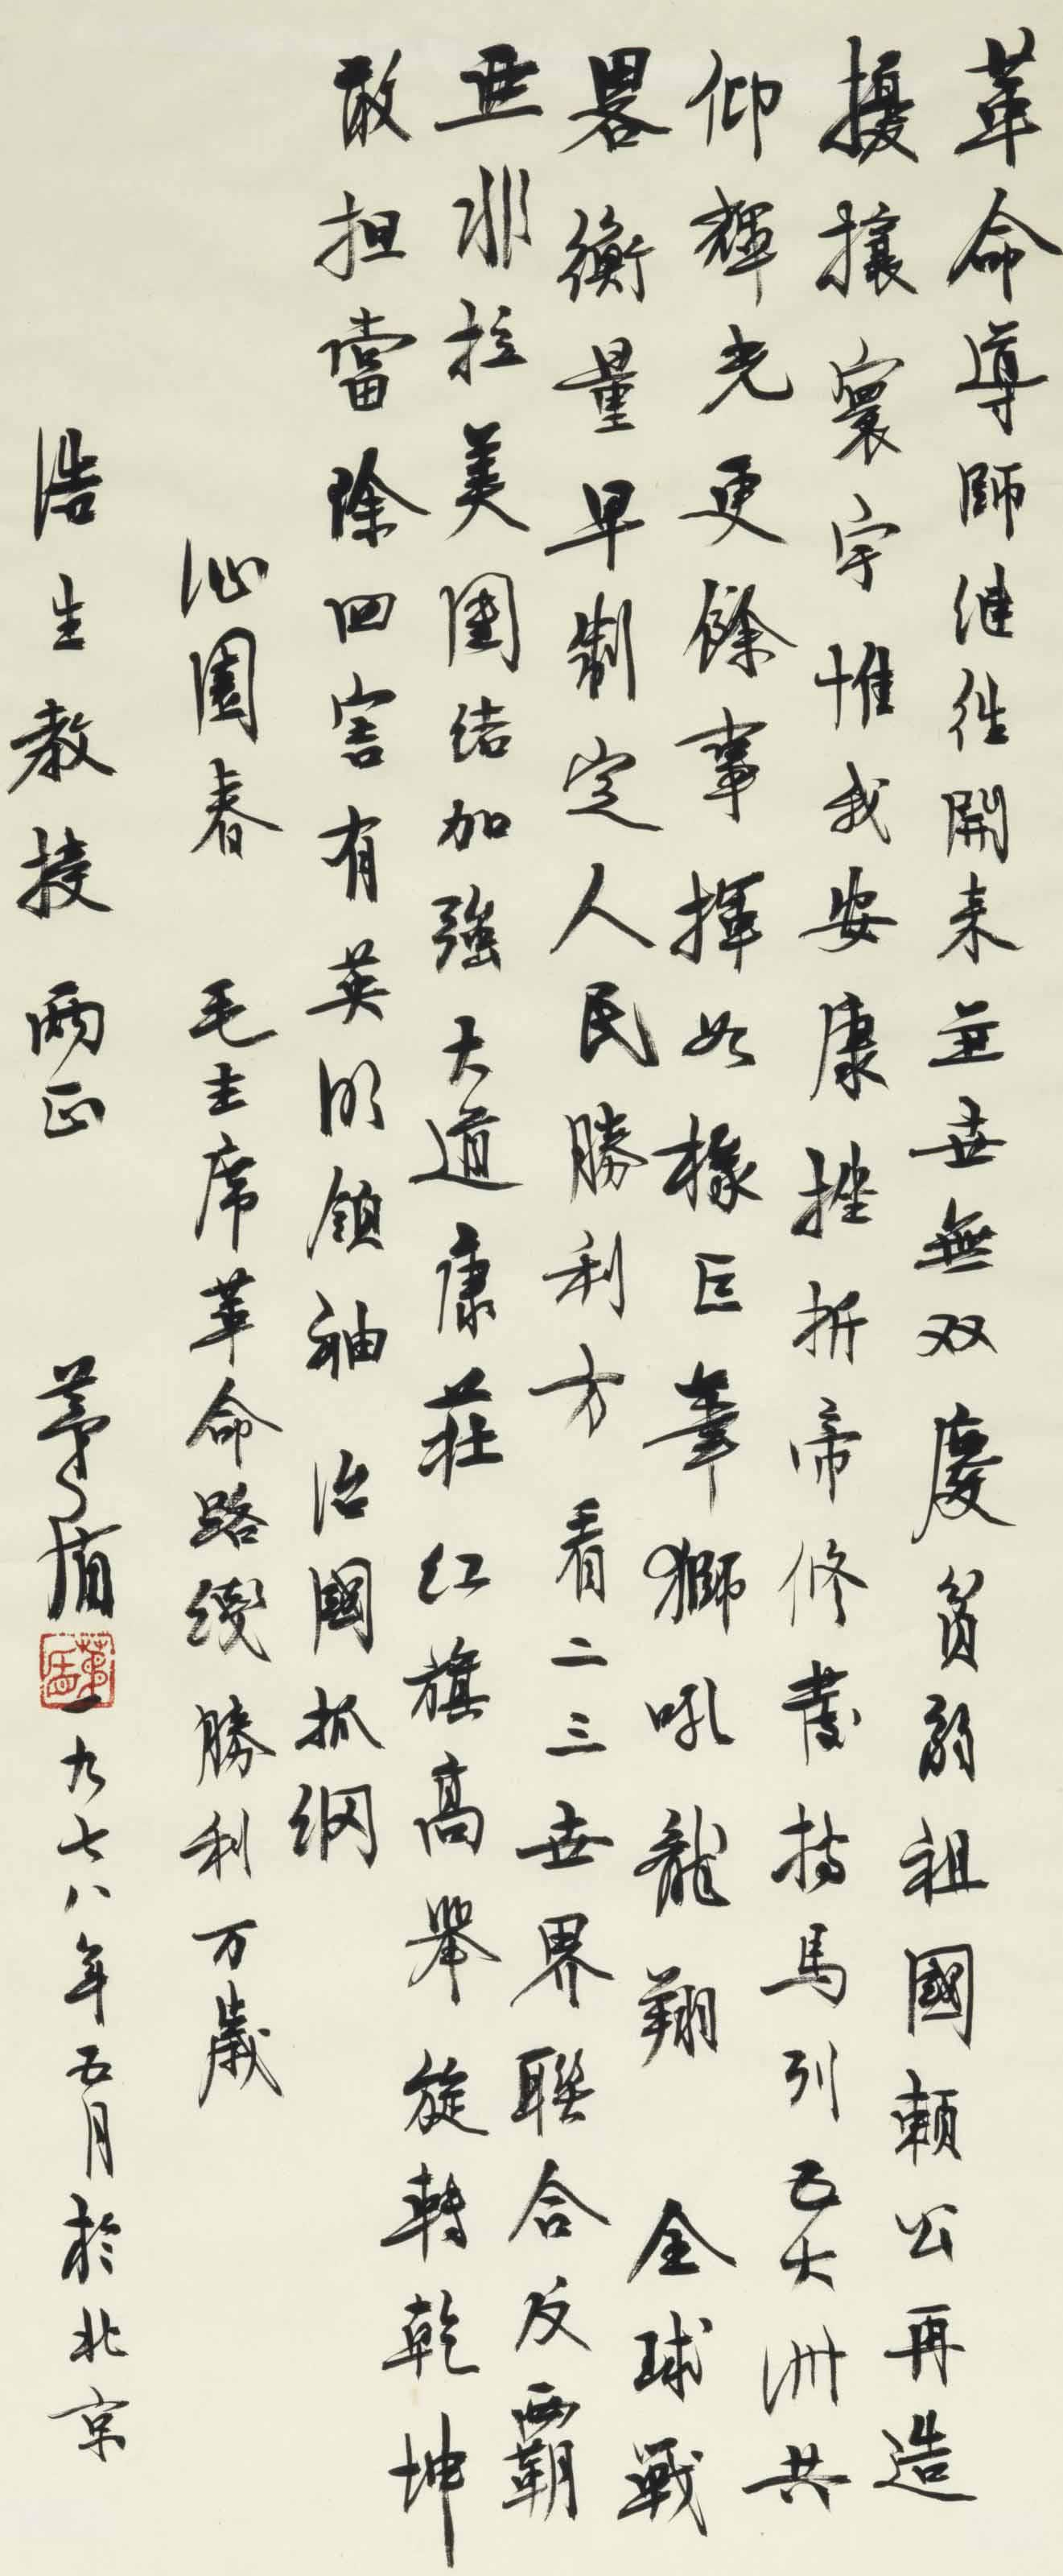 革命導師继往開来並世無双慶貧弱祖國賴公再造
擾攘寰宇惟我安康挫折帝修發揚馬列五大洲共
仰輝光更餘事揮如椽巨筆獅吼龍翔 全球戰
畧衡量早制定人民勝利方看二三世界聯合反两霸
亜非拉美團结加強大道康莊红旗高舉旋轉乾坤
敢担當除四害有英明領袖治國抓纲
沁園春 毛主席革命路綫勝利万歲
浩生教授两正 茅盾 一九七八年五月於北京
茅盾